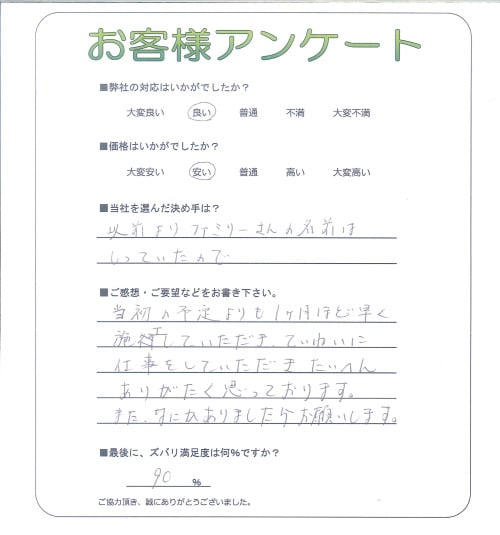 お客様アンケート
■弊社の対応はいかがでしたか？
大変良い 良い 普通 不満 大変不満
■価格はいかがでしたか？
大変安い 安い 普通 高い 大変高い
■当社を選んだ決め手は？
以前よりファミリーさんの名前は
しっていたので
■ご感想・ご要望などをお書き下さい。
当初の予定よりも1ヶ月ほど早く
施工していただき、ていねいに
仕事をしていただき たいへん
ありがたく思っております。
また、なにかありましたらお願いします。
■最後に、ズバリ満足度は何％ですか？
90 %
ご協力頂き、誠にありがとうございました。